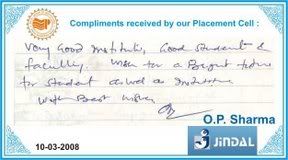 Compliments received by our Placement Cell :
Very Good Institute, Good Students &
faculty. Wish for a Bright future
for Student as well as Institute.
With Best Wishes
O.P. Sharma
JINDAL
10-03-2008